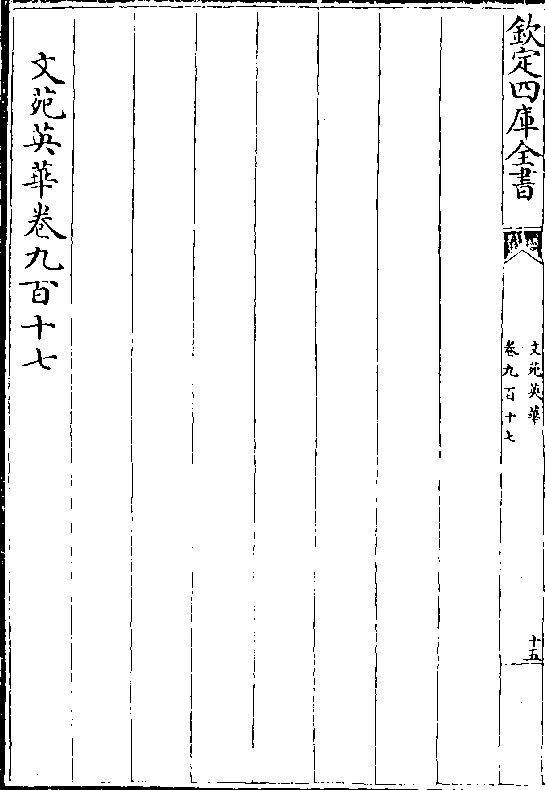 欽定四庫全書
文苑英華
卷九百十七
十五
文苑英華卷九百十七